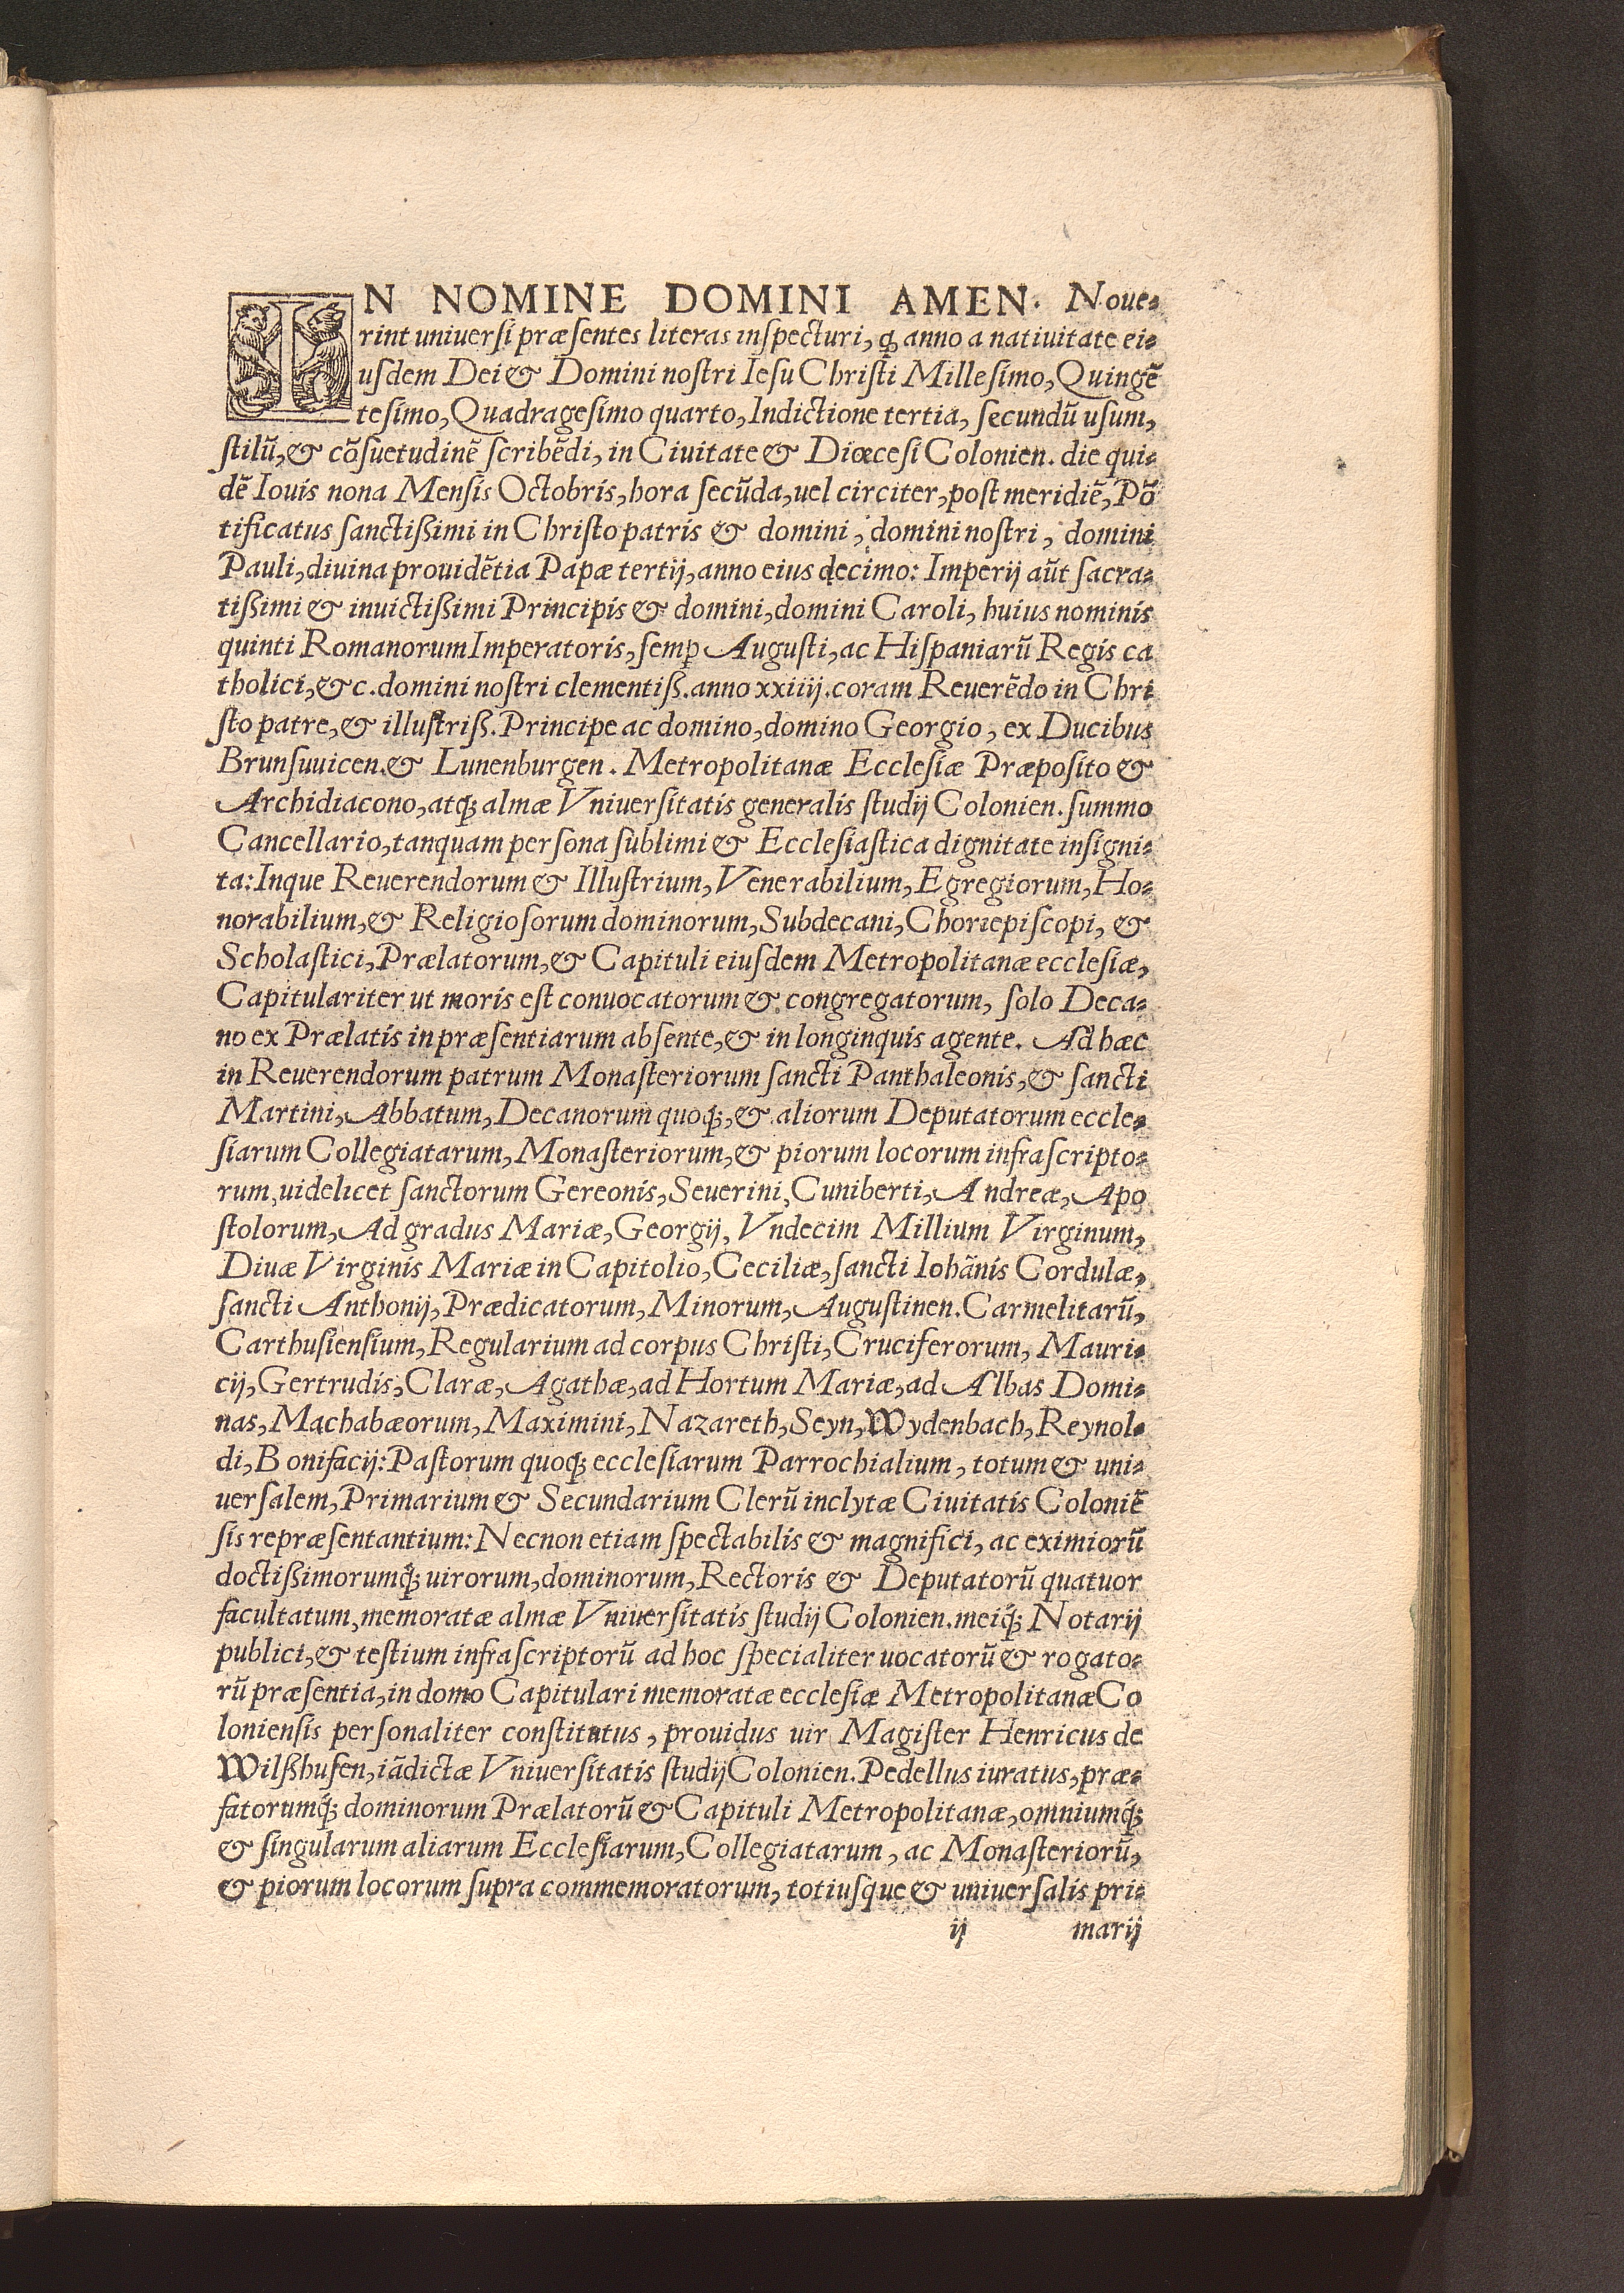 IN NOMINE DOMINI AMEN. Noue-
rint uniuersi præsentes literas inspecturi, ꝙ anno a natiuitate ei-
usdem Dei & Domini nostri Iesu Christi Millesimo, Quingẽ
tesimo, Quadragesimo quarto, Indictione tertia, secundũ usum,
stilũ, & cõsuetudinẽ scribẽdi, in Ciuitate & Diœcesi Colonien. die qui-
dẽ Iouis nona Mensis Octobris, hora secũda, uel circiter, post meridiẽ, Põ
tificatus sanctißimi in Christo patris & domini, domini nostri, domini
Pauli, diuina prouidẽtia Papæ tertij, anno eius decimo: Imperij aũt sacra-
tißimi & inuictißimi Principis & domini, domini Caroli, huius nominis
quinti Romanorum Imperatoris, semꝑ Augusti, ac Hispaniarũ Regis ca
tholici, &c. domini nostri clementiß. anno xxiiij. coram Reuerẽdo in Chri
sto patre, & illustriß. Principe ac domino, domino Georgio, ex Ducibus
Brunsuuicen. & Lunenburgen. Metropolitanæ Ecclesiæ Præposito &
Archidiacono, atq; almæ Vniuersitatis generalis studij Colonien. summo
Cancellario, tanquam persona sublimi & Ecclesiastica dignitate insigni-
ta: Inque Reuerendorum & Illustrium, Venerabilium, Egregiorum, Ho-
norabilium, & Religiosorum dominorum, Subdecani, Choriepiscopi, &
Scholastici, Prælatorum, & Capituli eiusdem Metropolitanæ ecclesiæ,
Capitulariter ut moris est conuocatorum & congregatorum, solo Deca-
no ex Prælatis in præsentiarum absente, & in longinquis agente. Ad hæc
in Reuerendorum patrum Monasteriorum sancti Panthaleonis, & sancti
Martini, Abbatum, Decanorum quoq;, & aliorum Deputatorum eccle-
siarum Collegiatarum, Monasteriorum, & piorum locorum infrascripto-
rum, uidelicet sanctorum Gereonis, Seuerini, Cuniberti, Andreæ, Apo
stolorum, Ad gradus Mariæ, Georgij, Vndecim Millium Virginum,
Diuæ Virginis Mariæ in Capitolio, Ceciliæ, sancti Iohãnis Cordulæ,
sancti Anthonij, Prædicatorum, Minorum, Augustinen. Carmelitarũ,
Carthusiensium, Regularium ad corpus Christi, Cruciferorum, Mauri-
cij, Gertrudis, Claræ, Agathæ, ad Hortum Mariæ, ad Albas Domi-
nas, Machabæorum, Maximini, Nazareth, Seyn, Wydenbach, Reynol-
di, Bonifacij: Pastorum quoq; ecclesiarum Parrochialium, totum & uni-
uersalem, Primarium & Secundarium Clerũ inclytæ Ciuitatis Coloniẽ
sis repræsentantium: Necnon etiam spectabilis & magnifici, ac eximiorũ
doctißimorumq́; uirorum, dominorum, Rectoris & Deputatorũ quatuor
facultatum, memoratæ almæ Vniuersitatis studij Colonien. meiq́; Notarij
publici, & testium infrascriptorũ ad hoc specialiter uocatorũ & rogato-
rũ præsentia, in domo Capitulari memoratæ ecclesiæ Metropolitanæ Co
loniensis personaliter constitutus, prouidus uir Magister Henricus de
Wilßhusen, iãdictæ Vniuersitatis studij Colonien. Pedellus iuratus, præ-
fatorumq́; dominorum Prælatorũ & Capituli Metropolitanæ, omniumq́;
& singularum aliarum Ecclesiarum, Collegiatarum, ac Monasteriorũ,
& piorum locorum supra commemoratorum, totiusque & uniuersalis pri-
ij marij